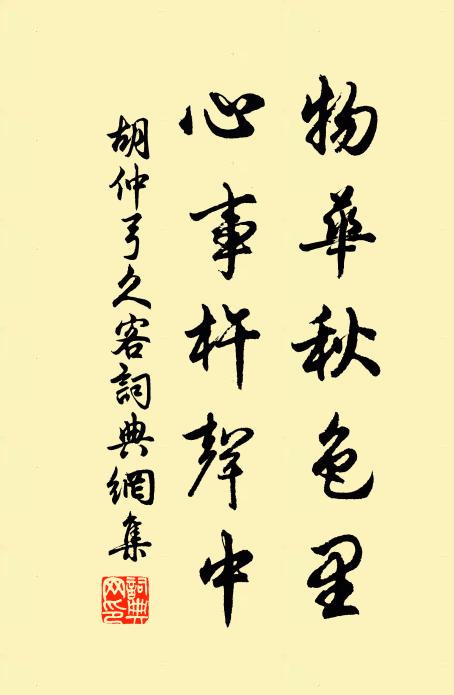 物華秋色里
心事杵聲中
胡仲弓久客詞典網集
詞典网印